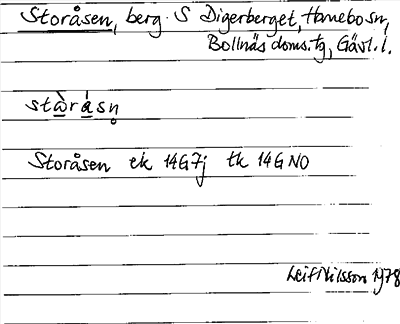 Storåsen, berg. S Digerberget, Hanebo sn,
Bollnäs doms. tg, Gävl. l.
stὰrásn̥
Storåsen ek 14G7j tk 14G NO
Leif Nilsson 1978